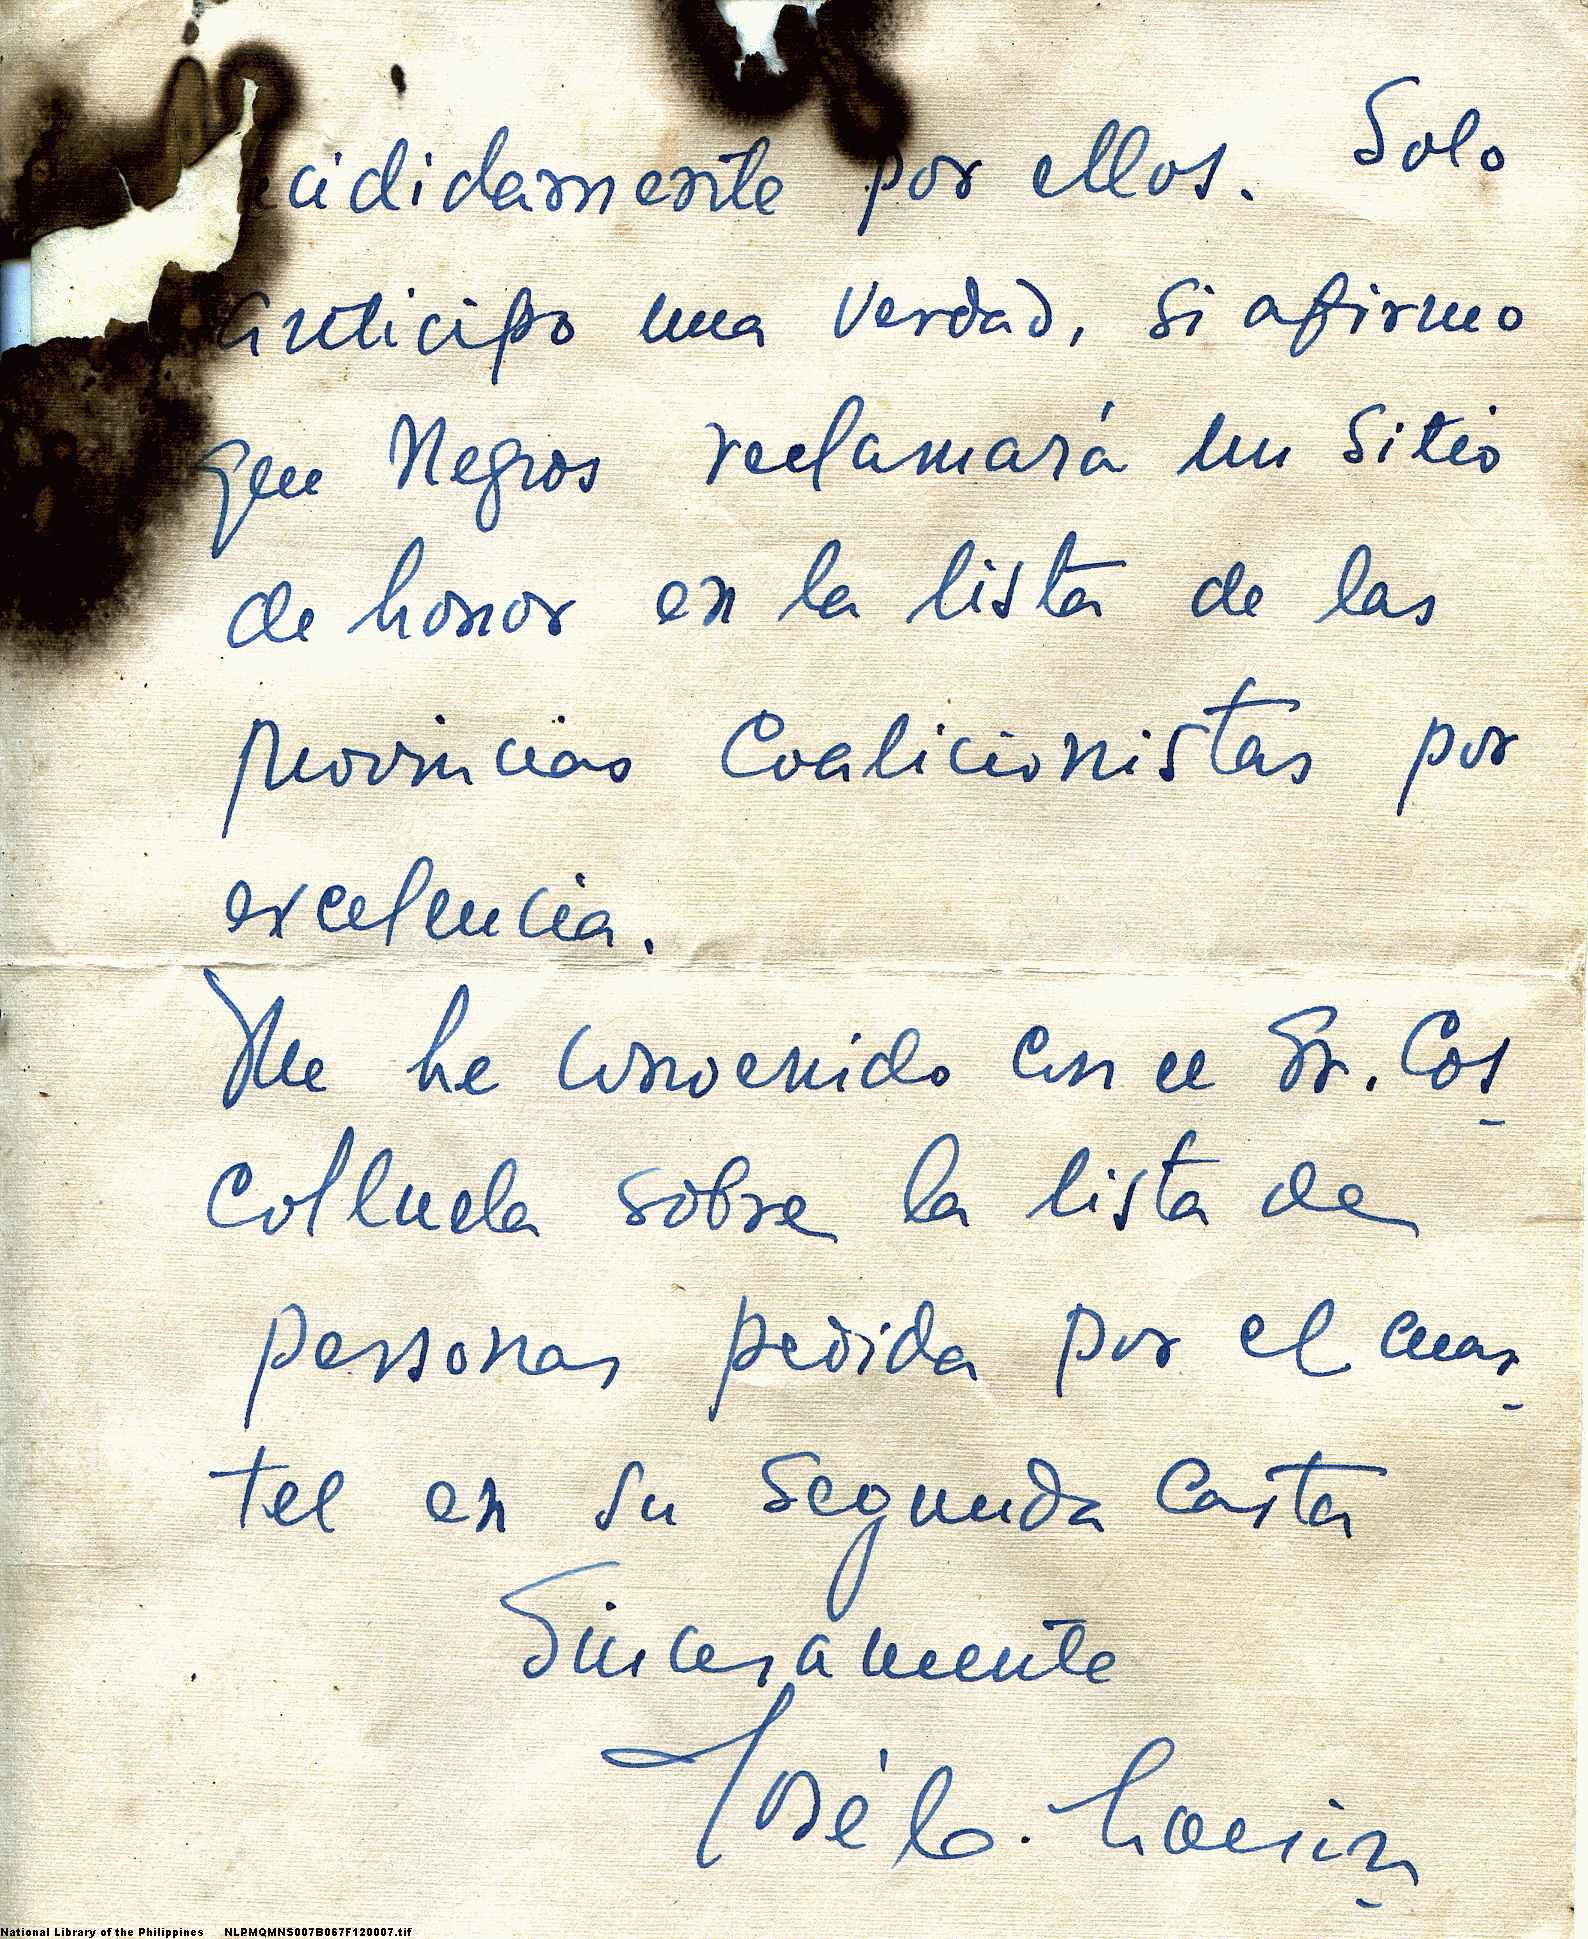 cididamente por ellos. Solo
anticipo una verdad, si afirmo
que Negros reclamará un sitio
de honor en la lista de las
provincias Coalicionistas por
excelencia.
Me he convenido con el Sr. Cos-
colluela sobre la lista de
personas pedida por el cuar-
tel en su segunda carta
Sinceramente
José
National Library of the Philippines NLPMQMNS007B067F120007.tif